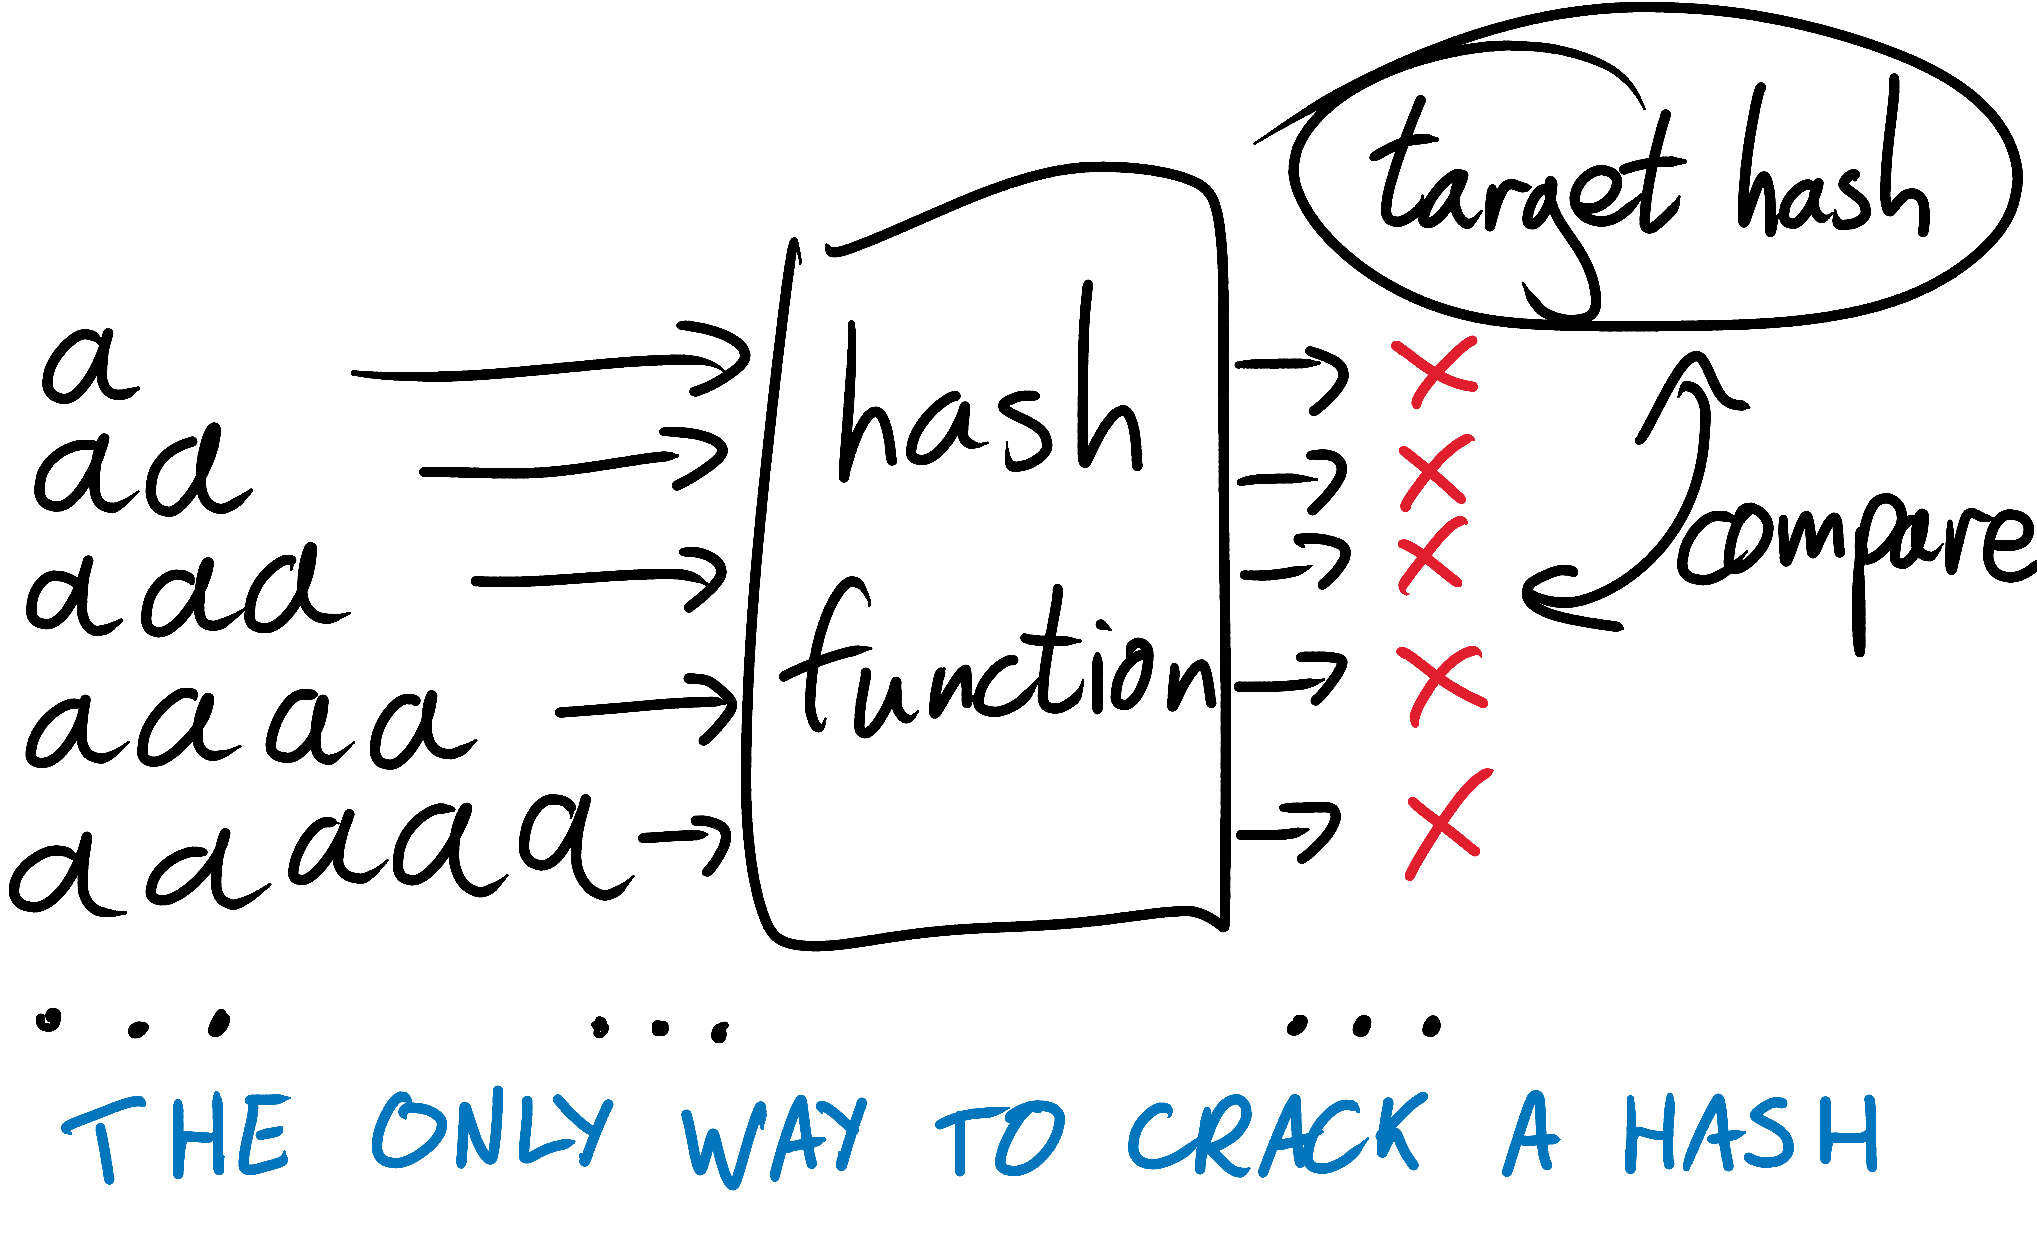 target hash
a
aa
aaa
aaaa
aaaaa
hash
function
compare
... ... ...
THE ONLY WAY TO CRACK A HASH